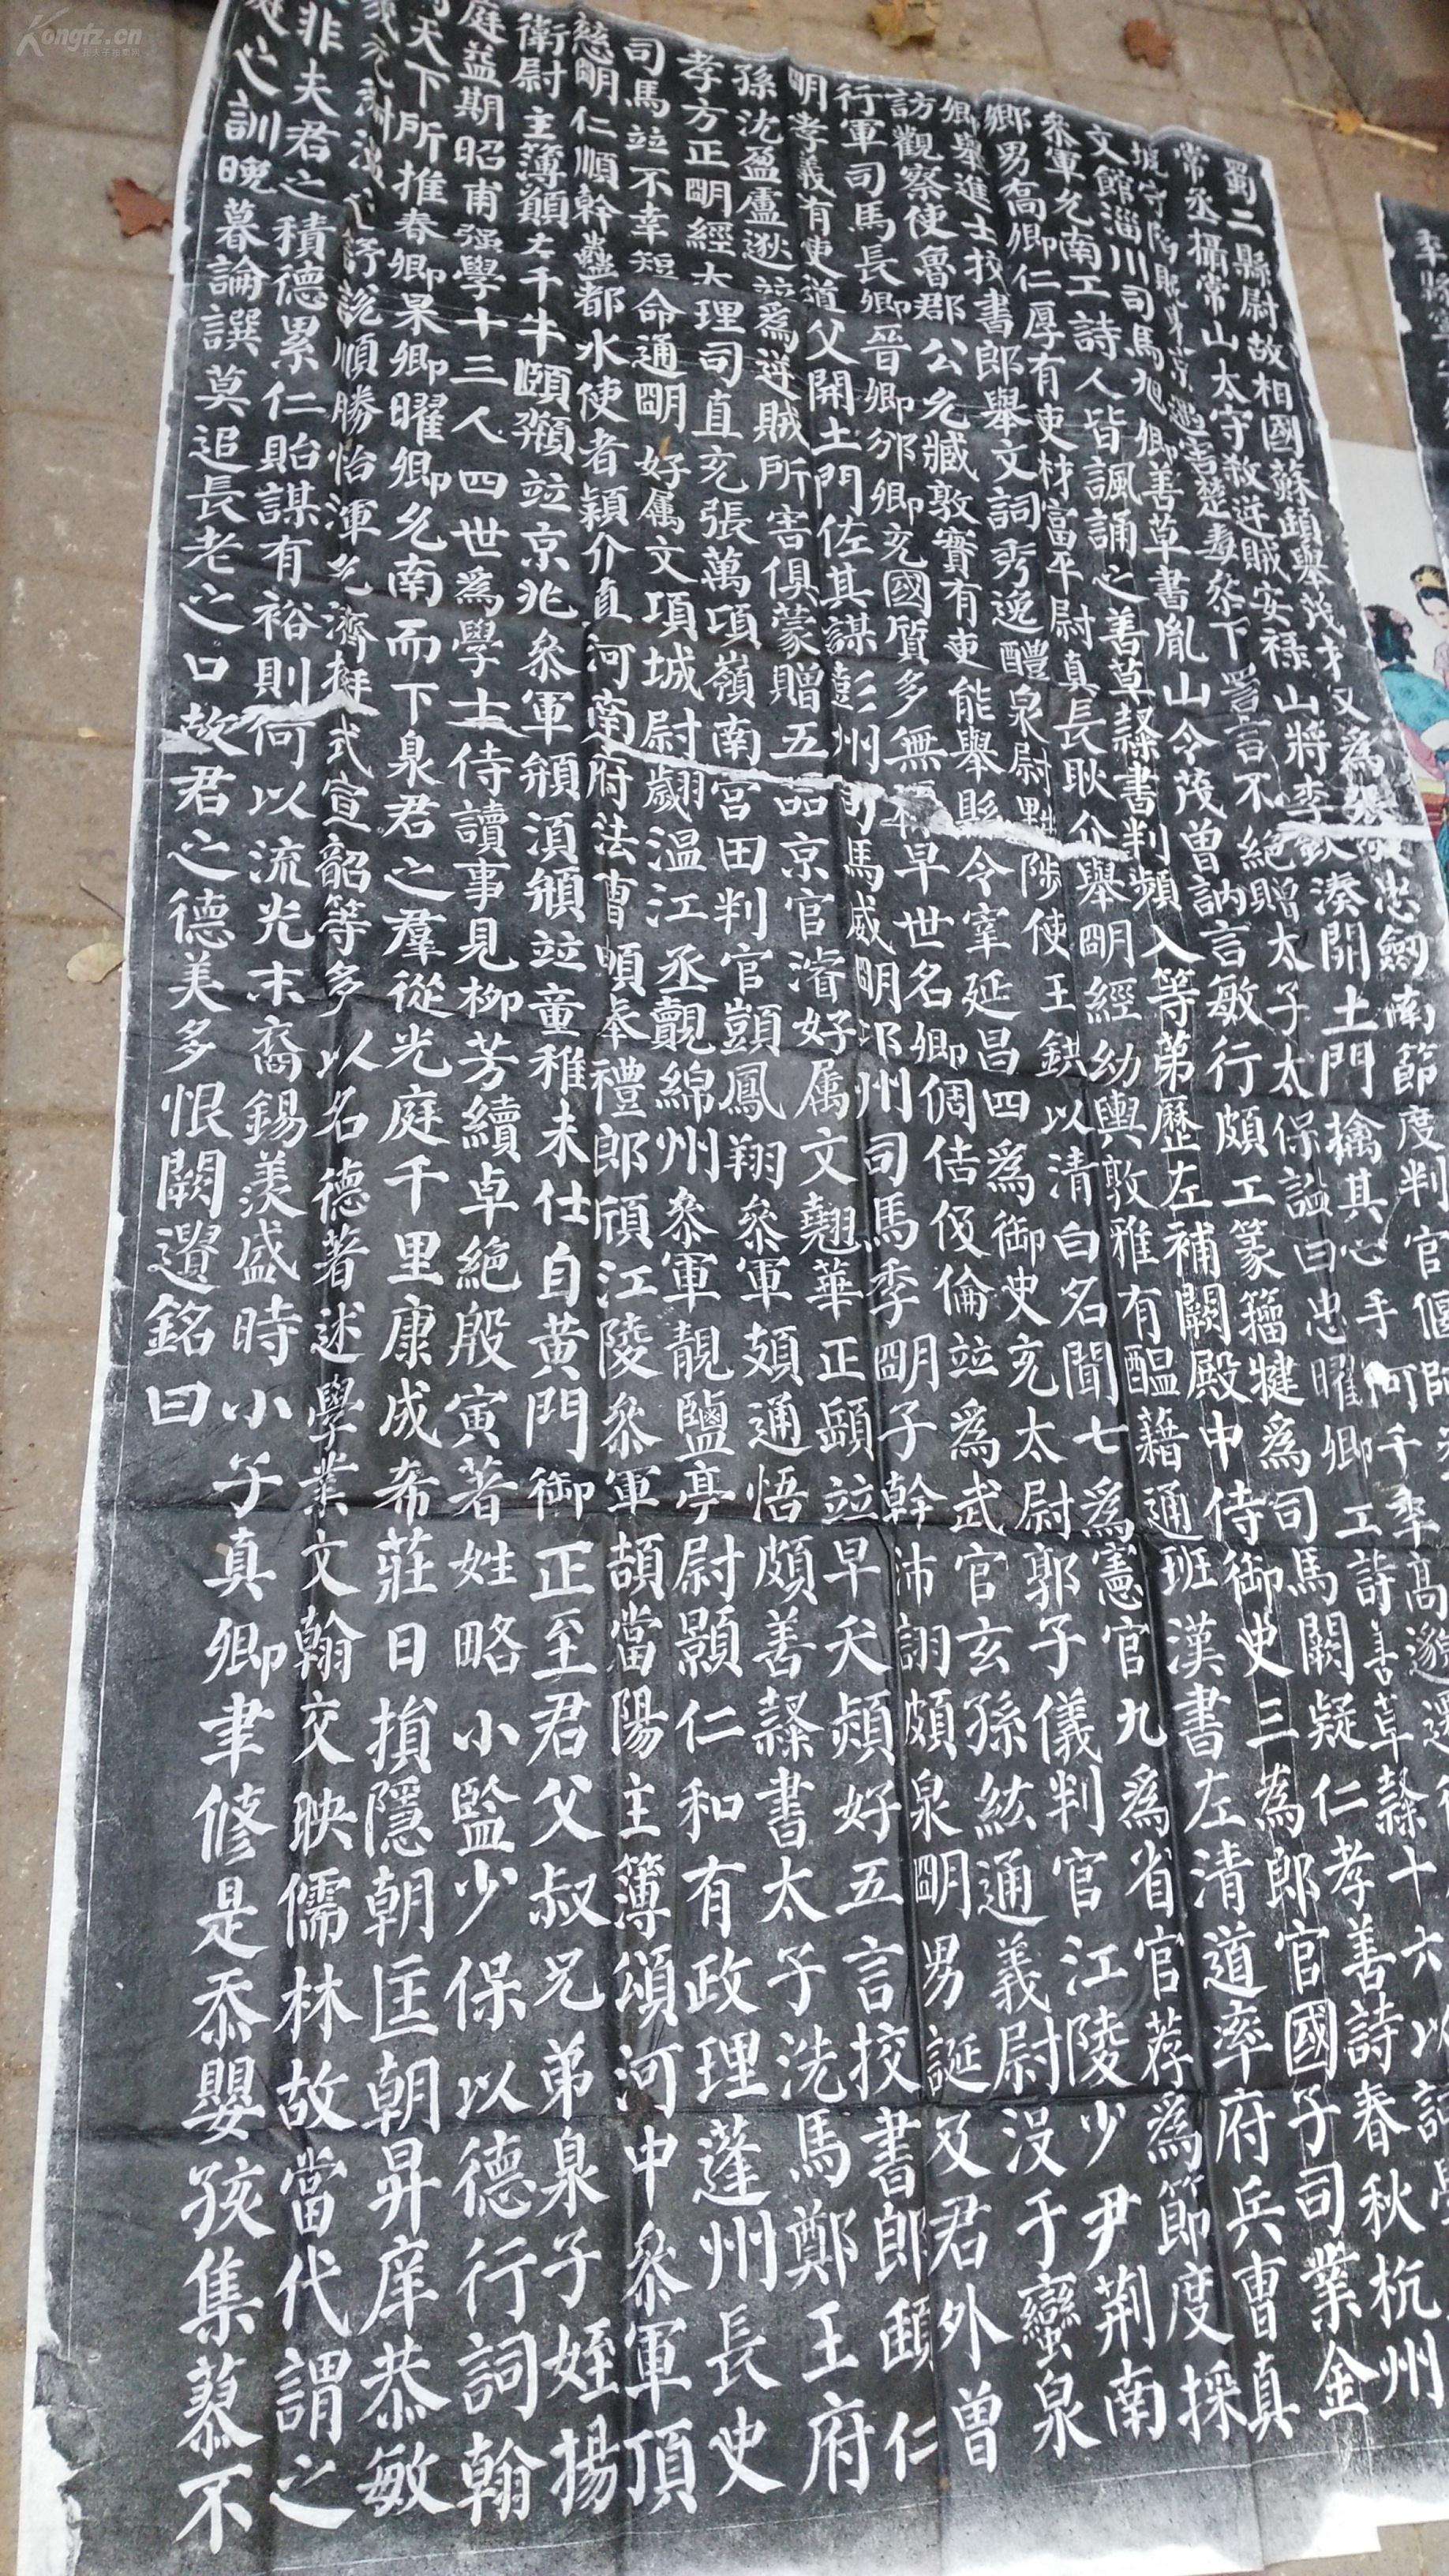 蜀二縣尉故相國蘇頲舉茂才又為張忠劒南節度判官偃師
常丞攝常山太守殺逆賊安祿山將李欽湊開土門擒其心手何千秊高邈遷
城守陷賊東京遇害楚毒叅下詈言不絕贈太子太保諡曰忠曜卿工詩善草隸十六以詞學
文館淄川司馬旭卿善草書胤山令茂曾訥言敏行頗工篆籀犍為司馬闕疑仁孝善詩春秋杭州
叅軍允南工詩人皆諷誦之善草隸書判頻入等弟歷左補闕殿中侍御史三為郎官國子司業金
鄉男喬卿仁厚有吏材富平尉真長耿介舉朙經幼輿敦雅有醞藉通班漢書左清道率府兵曹真
卿舉進士挍書郎舉文詞秀逸醴泉尉黜陟使王鉷以清白名聞七為憲官九為省官荐為節度採
訪觀察使魯郡公允臧敦實有吏能舉縣令宰延昌四為御史充太尉郭子儀判官江陵少尹荊南
行軍司馬長卿晉卿邠卿充國質多無祿早世名卿倜佶伋倫竝為武官玄孫紘通義尉沒于蠻泉
朙孝義有吏道父開土門佐其謀彭州司馬威朙邛州司馬季朙子幹沛詡頗泉朙男誕及君外曾
孫沈盈盧逖竝為逆賊所害俱蒙贈五品京官濬好屬文翹華正頵竝早夭熲好五言挍書郎頲仁
孝方正朙經大理司直充張萬頃嶺南營田判官顗鳳翔叅軍頍通悟頗善隸書太子洗馬鄭王府
司馬竝不幸短命通朙好屬文項城尉翽溫江丞覿綿州叅軍靚鹽亭尉顥仁和有政理蓬州長史
慈朙仁順幹蠱都水使者穎介直河南府法曹頔奉禮郎頎江陵叅軍頡當陽主簿頌河中叅軍頂
衛尉主簿願左千牛頤頫竝京兆叅軍頯須頯竝童稚未仕自黃門御正至君父叔兄弟泉子姪揚
庭益期昭甫強學十三人四世為學士侍讀事見柳芳續卓絕殷寅著姓略小監少保以德行詞翰
為天下所推春卿杲卿曜卿允南而下泉君之羣從光庭千里康成希莊日損隱朝匡朝昇庠恭敏
鄰幾元淑溫之舒說順勝怡渾允濟挺式宣韶等多以名德著述學業文翰交映儒林故當代謂之
非夫君之積德累仁貽謀有裕則何以流光末裔錫羨盛時小子真卿聿修是忝嬰孩集蓼不
庭之訓晚暮論譔莫追長老之口故君之德美多恨闕遺銘曰
Kongfz.cn